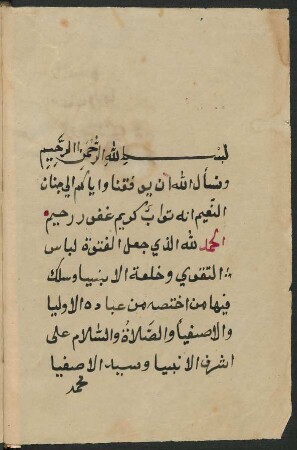 بسم الله الرحمن الرحيم
ونسال الله ان يوفقنا واياكم الي جنات
النعيم انه تواب كريم غفور رحيم
الحمد لله الذي جعل الفتوة لباس
التقوي وخلعة الانبيا وسلك
فيها من اختصه من عباده الاوليا
والاصفيا والصلاة والسلام على
اشرف الانبيا وسيد الاصفيا
محمد